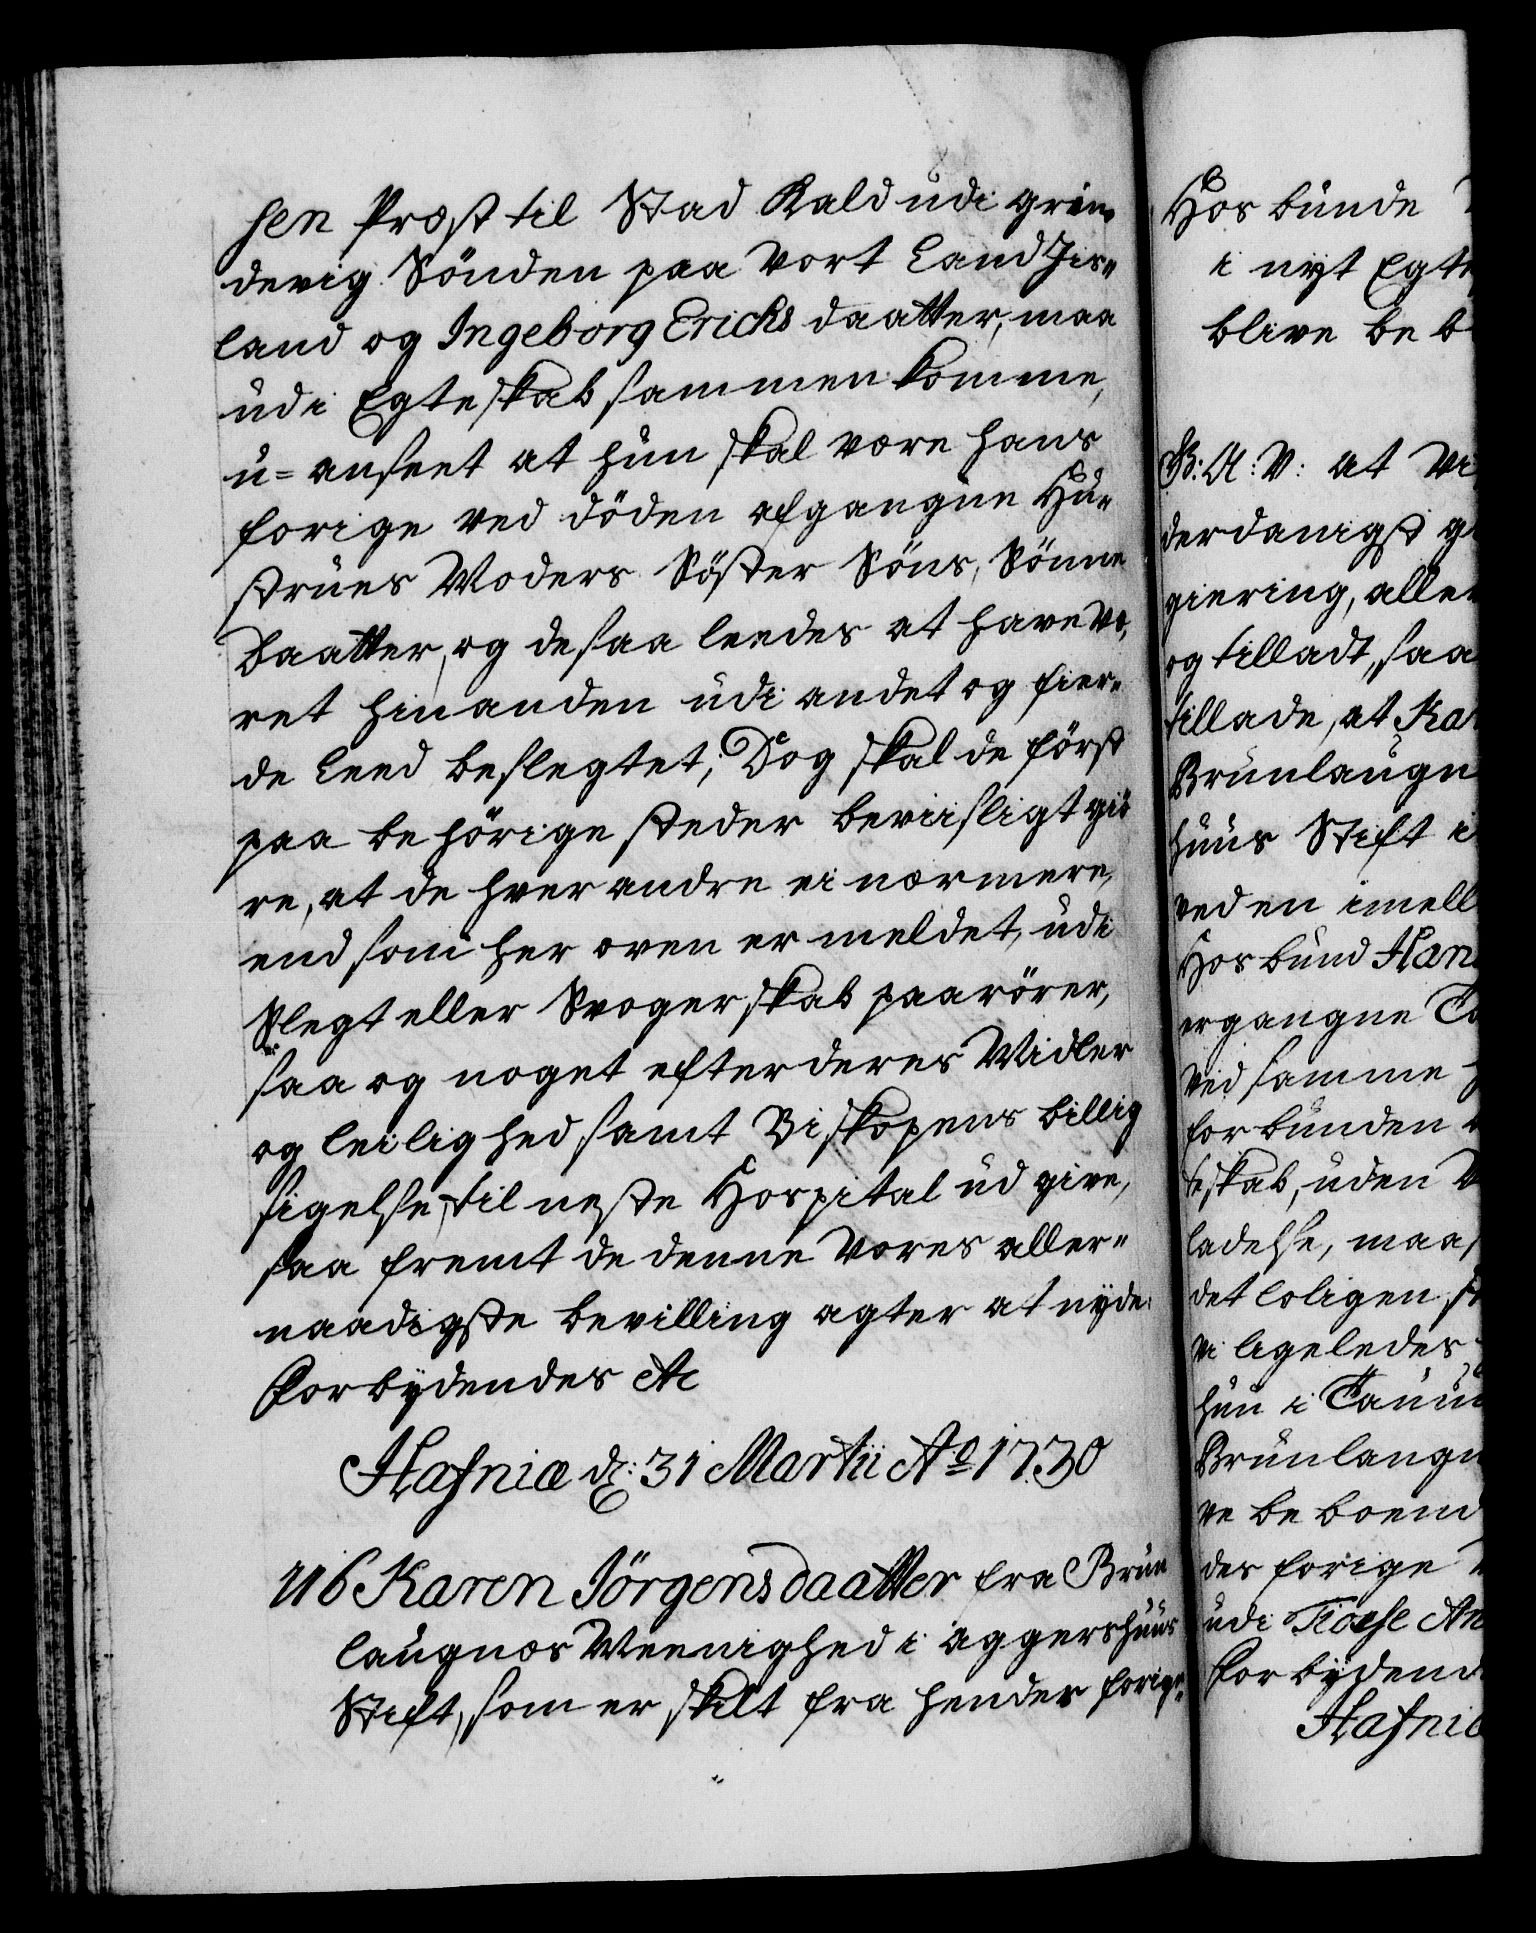 sen Præst til Stad Kald udi grin„
devig Sönden paa Vort Land Jis„
land og Ingeborg Erichs daatter, maa
udi Egteskab sammen komme,
u=anseet at hun skal være hans
forige ved döden afgangne Hu„
strues Moders Söster Söns, Sönne
Daatter, og de saaleedes at have væ„
ret hinanden udi andet og fier„
de Leed beslegtet; Dog skal de först
paa behörige steder beviisligt giö
re, at de hver andre ei nærmere,
end som her oven er meldet, udi
Slegt eller Svogerskab paarörer,
saa og noget efter deres Midler
og leilighed samt Biskopens billig
sigelse, til neste Hospital ud give,
saa fremt de denne Vores aller„
naadigste bevilling agter at nyde.
Forbydendes Etc
Hafniæ d: 31 Martii Aº 1730
116 Karen Jörgensdaatter fra Brun
laugnæs Meenighed i Aggershuus
Stift, som er skilt fra hendes forige„
Hosbunde
i nyt Egte
blive be b
G: A: V: at Vi
derdanigst
giering, aller
og tilladt, saa
tillade, at Kar
Brunlaugn
huus Stift i
ved en imell
Hosbund Han
ergangne
ved samme
forbunden
teskab, uden
ladelse, maa
det lovligen
vi ligeledes
hun i
Brunlaugn
re be boend
des forige
udi Tiöese An
Forbydend
Hafniæ